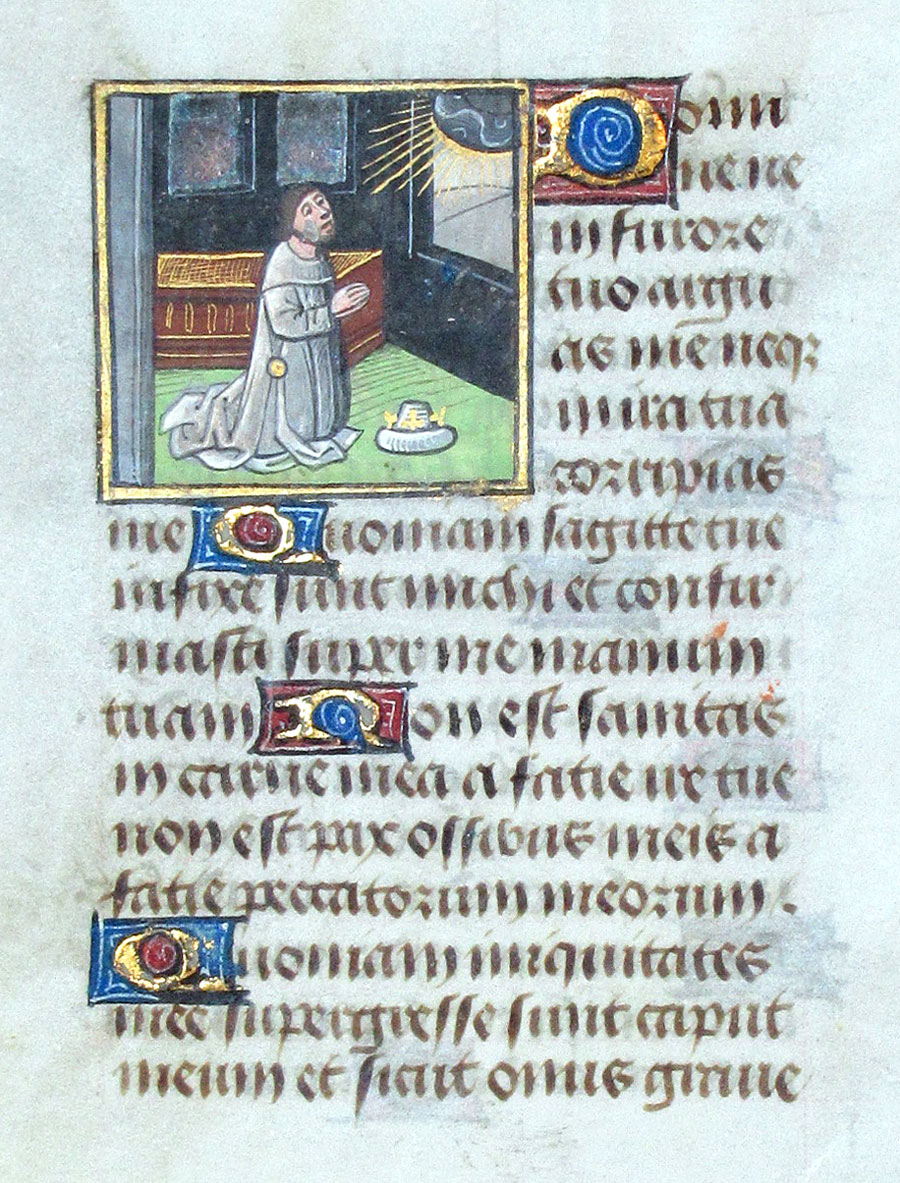 Domi
ne ne
in furore
tuo argu
as me neqȝ
in ira tua
corripias
me Quoniam sagitte tue
infixe sunt michi et confir
masti super me manum
tuam Non est sanitas
in carne mea a facie ire tue
non est pax ossibus meis a
facie peccatorum meorum.
Quoniam iniquitates
mee supergresse sunt caput
meum et sicut onus graue